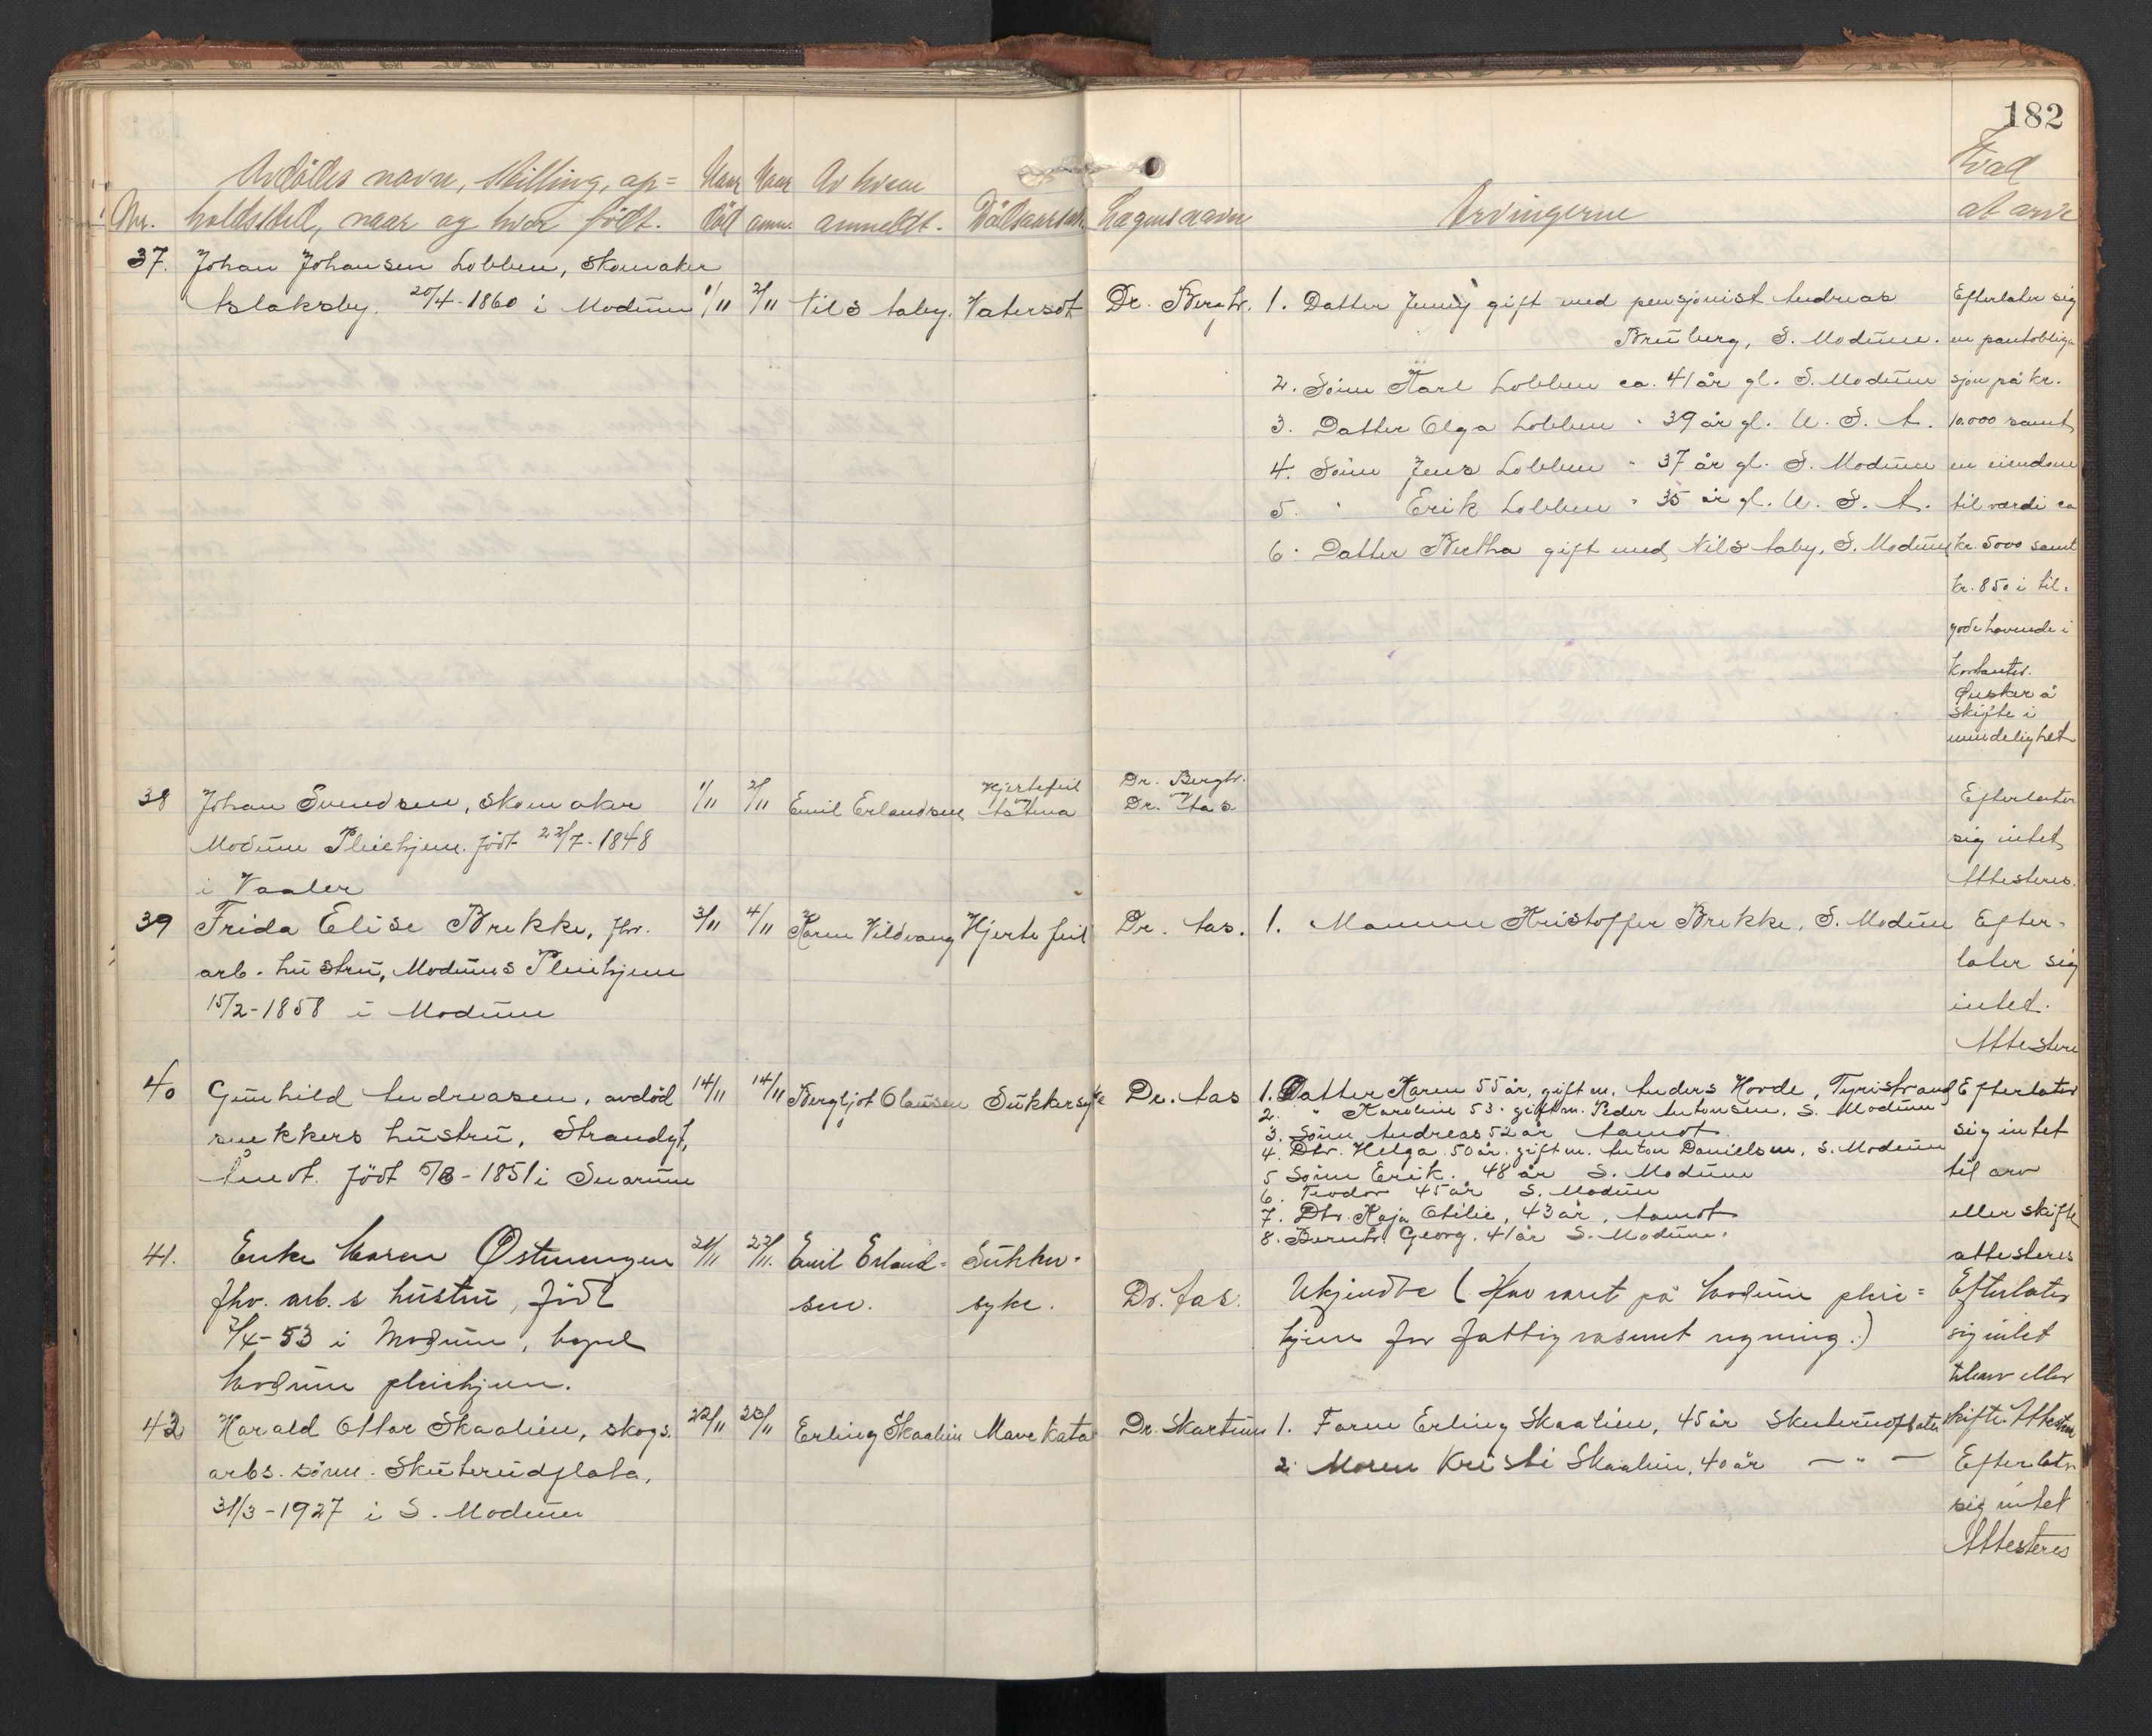 182
Avdödes navn, stilling, op= Naar Naar Av hvem Hvad
Nr. holdssted, naar og hvor født. död anm. anmeldt. Dödsaarsak. Lægens navn Arvingerne at arve
37. Johan Johansen Lobben, skomaker
Aslaksby. 20/4-1860 i Modum 1/11 2/11 Nils Aaby. Vatersot Dr. Bergh. 1. Datter Jenny gift med pensjonist Andreas Efterlater sig
Bruberg, S. Modum. en pantobliga
2. Sönn Karl Lobben ca. 41 år gl. S. Modum sjon på kr.
3. Datter Olga Lobben " 39 år gl. U. S. A. 10.000 samt
4. Sönn Jens Lobben " 37 år gl. S. Modum en eiendom
5. " Erik Lobben " 35 år gl. U. S. A. til værdi ca
6. Datter Bertha gift med Nils Aaby, S. Modum kr. 5000 samt
kr. 850 i til-
godehavende i
kontanter.
Ønsker å
skifte i
mindelighet
38 Johan Svendsen, skomaker 1/11 2/11 Emil Erlandsen Hjertefeil Astma Dr. Bergh. Dr. Aas Efterlater
Modum Pleiehjem. født 22/7-1848 sig intet
i Vaaler Attesteres.
39 Frida Elise Brekke, fhv. 3/11 4/11 Karen Vildvang Hjertefeil Dr. Aas. 1. Mannen Kristoffer Brekke, S. Modum Efter-
arb. hustru, Modums Pleiehjem later sig
15/2-1858 i Modum intet.
Attestere
40 Gunhild Andreasen, avdöd 14/11 14/11 Bergljot Olausen Sukkersyke Dr. Aas 1. Datter Karen 55 år, gift m. Anders Hovde, Tyristrand Efterlater
2. " Karoline 53. gift m. Peder Antonsen, S. Modum
snekkers hustru, Strandgt, 3. Sönn Andreas 52 år Aamot sig intet
4. Dtr. Helga 50 år. gift m. Anton Danielsen, S. Modum
Åmot. född 5/8-1851 i Snarum 5 Sönn Erik. 48 år S. Modum til arv
6. Teodor 45 år S. Modum
7. Dtr. Kaja Otilie, 43 år, Aamot eller skifte
8. Bernh. Georg. 41 år S. Modum.
41. Enke Maren Østmengen 21/11 22/11. Emil Erland= Sukker- attesteres
fhv. arb.s hustru, född sen. syke. Dr. Aas. Ukjendte (Har vært på Modum pleie= Efterlater
7/4-53 i Modum, bopel hjem for fattigvesenet regning.) sig intet
Modum pleiehjem. til arv eller
42 Harald Ottar Skaalien, skogs. 22/11 23/11 Erling Skaalien Mavekata Dr. Skartum 1. Faren Erling Skaalien, 45 år Skuterudflata skifte. Attestere
arbs. sönn. Skuterudflata, 2. Moren Kristi Skaalien, 40 år — " — Efterlater
31/3-1927 i S. Modum sig intet
Attesteres